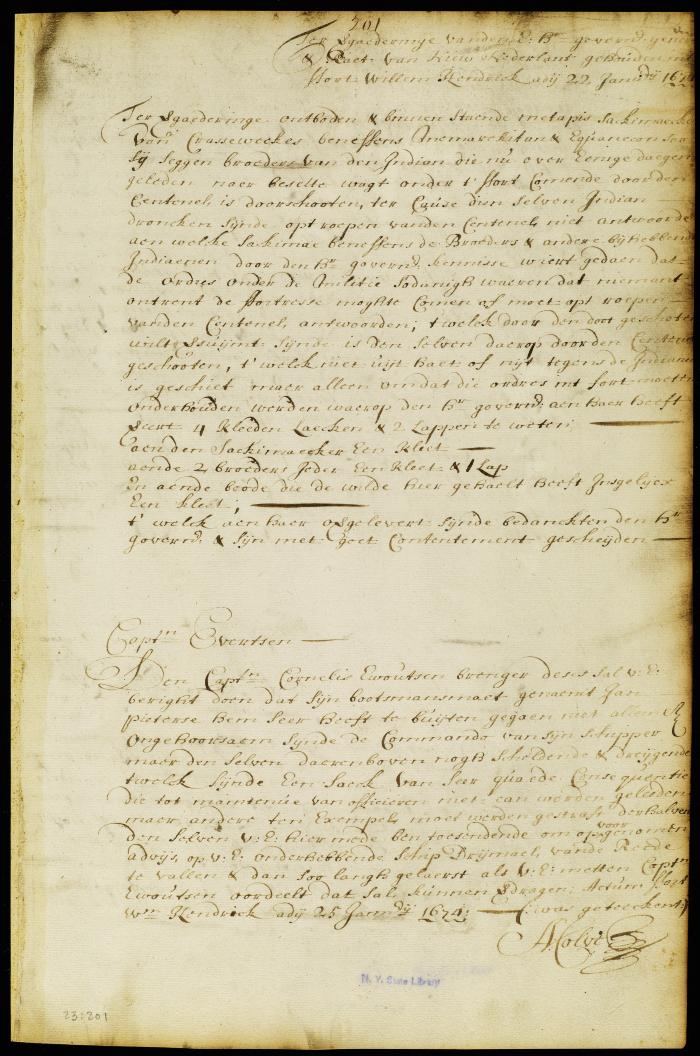 201
Ter Vgaederinge vanden E: Hr govern: gener
& Raet van Nieuw Nederlant gehouden int
ffort Willem Hendrick adij 22 Janu: 167
Ter Vgaederinge ontboden & binnen staende metapis Sackimaecker
van Crasseweckes beneffens Anemarehitan & Equanecon soo
sij seggen broeders van den Indian die nu over Eenige daegen
geleden naer besette wagt onder t' ffort Comende door den
Centenel is doorschooten, ter Cause dien selven Indian
droncken sijnde opt roepen vanden Centenel niet antwoorde
aen welcke Sackimae beneffens de Broeders & andere bijhebbende
Indiaenen door den Hr govern: kennisse wiert gedaen dat
de ordres onder de Militie sodanigh waeren dat niemant
ontrent de ffortresse moghte Comen of moet opt roepen
vanden Centenel antwoorden; t'welck door den doot geschoten
wilt Vsuijmt sijnde is den selven daerop door den Centenel
geschooten, t' welck niet uijt haet of nijt tegens de Indianen
is geschiet maer alleen omdat die ordres int fort moeten
onderhouden werden waerop den Hr govern: aen haer heeft
Veert 4 kleeden Laecken & 2 Lappen te weten;
aen den Sackimaecker Een kleet
aende 2 broeders Jeder Een kleet & 1 Lap
En aende boode die de wilde hier gehaelt heeft Insgelijcx
Een kleet;
t' welck aen haer opgelevert sijnde bedanckten den Hr
govern: & sijn met goet Contentement gescheijden
Captn Evertsen
Den Captn Cornelis Ewoutsen brenger deses sal v: E:
beright doen dat sijn bootsmansmaet genaemt Jan
pieterse hem seer heeft te buijten gegaen niet alleen
ongehoorsaem sijnde de Commando van sijn schipper
maer den selven daerenboven nogh scheldende & dreijgende
t'welck sijnde Een saeck van seer quaede Consequentie
die tot maintenue van officieren niet can werden geleeden
maer andere ten Exempel moet werden gestraft derhalven
den selven v: E: hier mede ben toesendende om voor opgenomen
advijs, op v: E: onderhebbende schip Drijmael vande Reede
te vallen & dan soo langh gelaerst als v: E: metten Captn
Ewoutsen oordeelt dat sal kunnen Vdragen; Actum ffort
Wm Hendrick adij 25 Janu: 1674; (was geteeckent)
A. Colve
N. Y. State Library
23:201